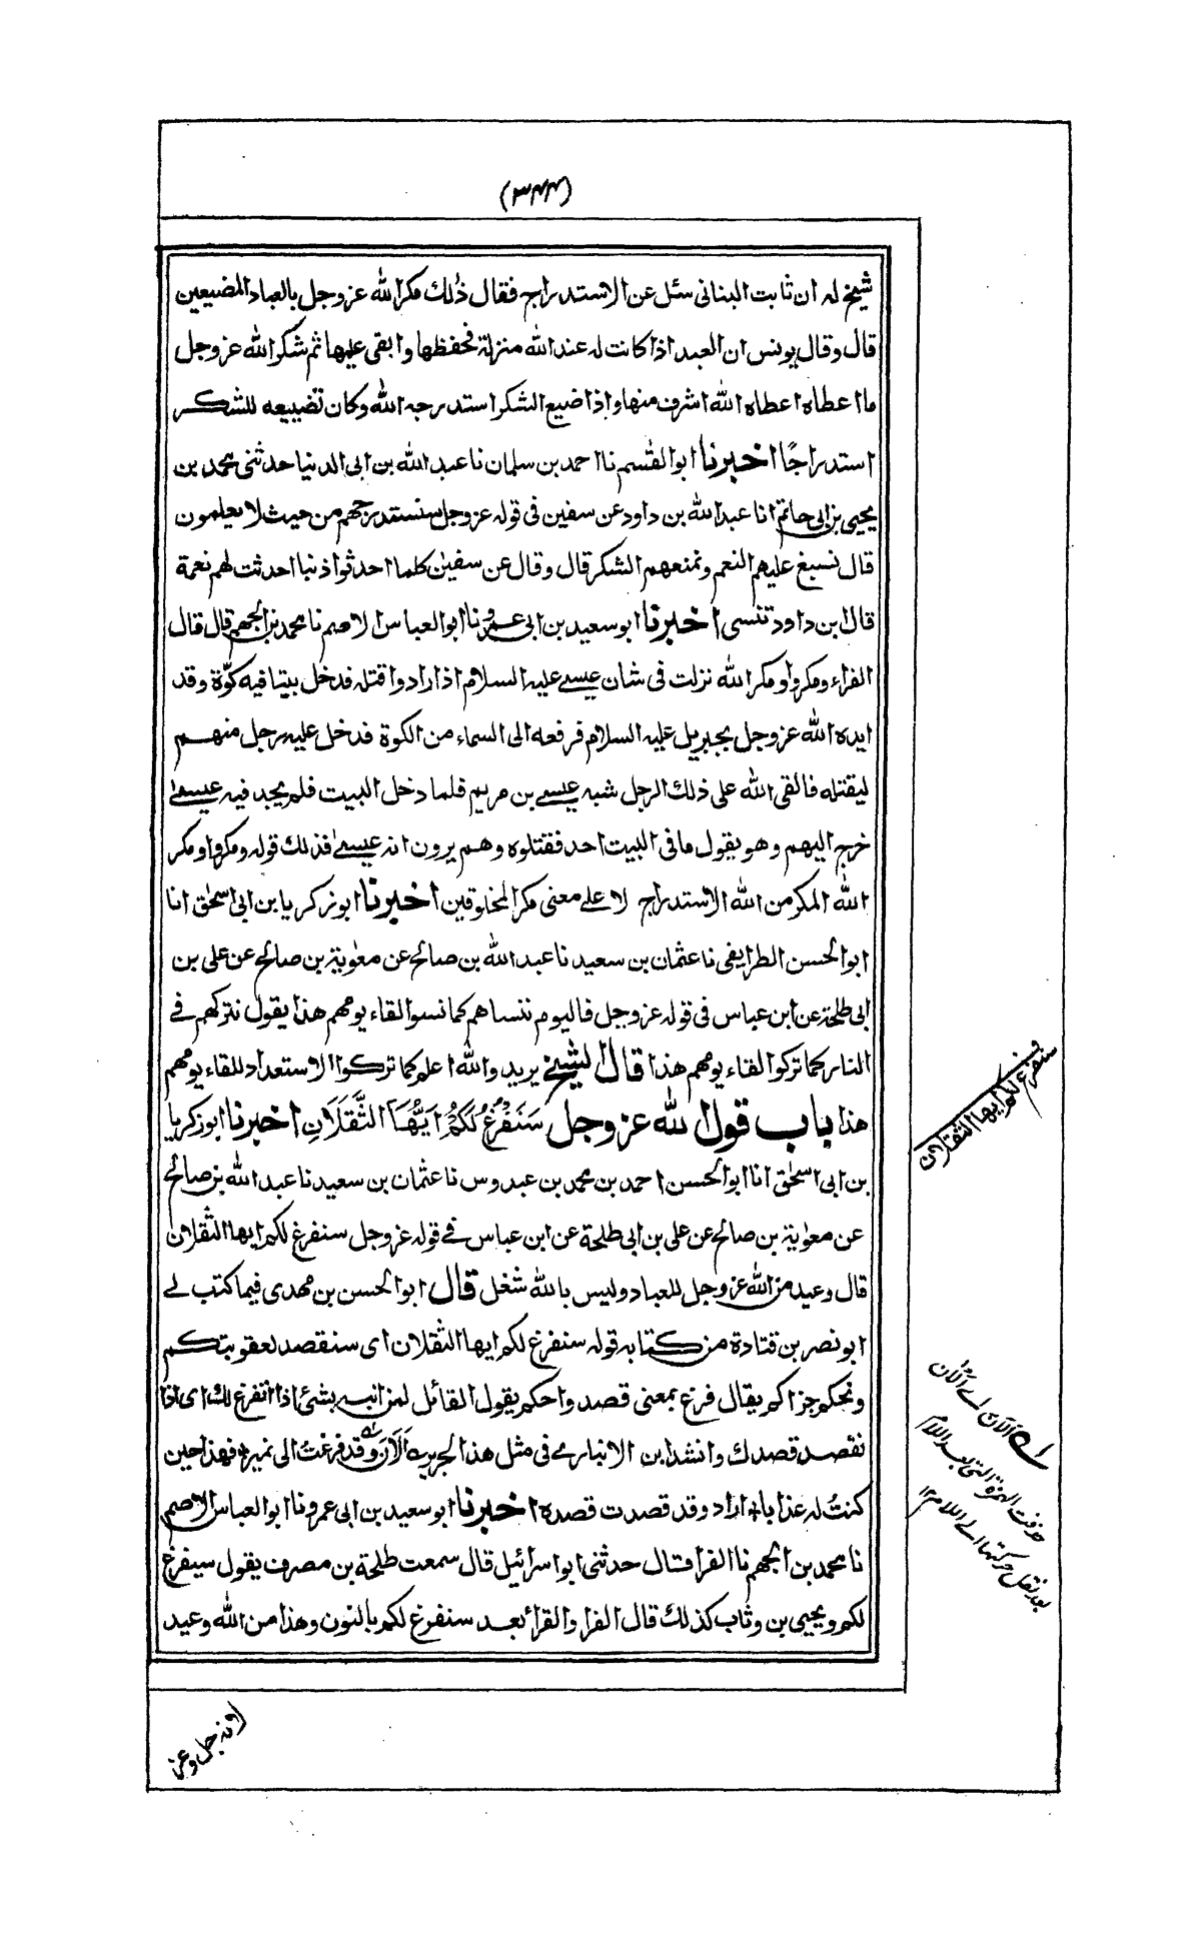 (٣٤٤)
شيخ له ان ثابت البنانى سئل عن الاستدراج فقال ذلك مكر الله عز وجل بالعباد المضيعين
قال وقال يونس ان العبد اذا كانت له عند الله منزلة فحفظها وابقى عليها ثم شكر الله عز وجل
ما اعطاه اعطاه الله اشرف منها واذا ضيع الشكر استدرجه الله وكان تضييعه للشكر
استدراجًا اخبرنا ابو القسم نا احمد بن سلمان نا عبد الله بن ابى الدنيا حدثنى محمد بن
يحيى بن ابى حاتم انا عبد الله بن داود عن سفين فى قوله عز وجل سنستدرجهم من حيث لا يعلمون
قال نسبغ عليهم النعم ونمنعهم الشكر قال وقال عن سفين كلما احدثوا ذنبا احدثت لهم نعمة
قال ابن داود تنسى اخبرنا ابو سعيد بن ابى عمرو نا ابو العباس الاصم نا محمد بن الجهم قال قال
الفراء ومكروا ومكر الله نزلت فى شان عيسے عليه السلام اذ ارادوا قتله فدخل بيتا فيه كوّة وقد
ايده الله عز وجل بجبريل عليه السلام فرفعه الى السماء من الكوة فدخل عليه رجل منهم
ليقتله فالقى الله على ذلك الرجل شبه عيسے بن مريم فلما دخل البيت فلم يجد فيه عيسےٰ
خرج اليهم وهو يقول ما فى البيت احد فقتلوه وهم يرون انه عيسےٰ فذلك قوله ومكروا ومكر
الله المكر من الله الاستدراج لا علے معنى مكر المخلوقين اخبرنا ابو زكريا بن ابى اسحٰق انا
ابو الحسن الطرايفى نا عثمان بن سعيد نا عبد الله بن صالح عن معٰوية بن صالح عن على بن
ابى طلحة عن ابن عباس فى قوله عز وجل فاليوم ننساهم كما نسوا لقاء يومهم هذا يقول نتركهم فے
النار كما تركوا لقاء يومهم هذا قال الشيخ يريد والله اعلم كما تركوا الاستعداد للقاء يومهم
هذا باب قول الله عز وجل سَنَفْرُغُ لَكُمْ اَيُّهَا الثَّقَلَانِ اخبرنا ابو زكريا
بن ابى اسحٰق انا ابو الحسن احمد بن محمد بن عبدوس نا عثمان بن سعيد نا عبد الله بن صالح
عن معٰوية بن صالح عن على بن ابى طلحة عن ابن عباس فے قوله عز وجل سنفرغ لكم ايها الثقلان
قال وعيد من الله عز وجل للعباد وليس بالله شغل قال ابو الحسن بن مهدى فيما كتب لے
ابو نصر بن قتادة من كتابه قوله سنفرغ لكم ايها الثقلان اى سنقصد لعقوبتكم
ونحكم جزاكم يقال فرغ بمعنى قصد واحكم يقول القائل لمن انبه بشئ اذا اتفرغ لك اى اذا
نقصد قصدك وانشد ابن الانبارے فى مثل هذا لجرير اَلَانَ وقد فرغتُ الى نمير؛ فهذا حين
كنتُ له عذابا؛ اراد وقد قصدت قصده اخبرنا ابو سعيد بن ابى عمرو نا ابو العباس الاصم
نا محمد بن الجهم نا الفرا قال حدثنى ابو اسرائيل قال سمعت طلحة بن مصرف يقول سيفرغ
لكم ويحيى بن وثاب كذلك قال الفرا والقرا بعد سنفرغ لكم بالنون وهذا من الله وعيد
سنفرغ لكم ايها الثقلان
حذفت الهمزة التى بعد اللام
بعد نقل حركتها اے اللام ١٢
جل وعز